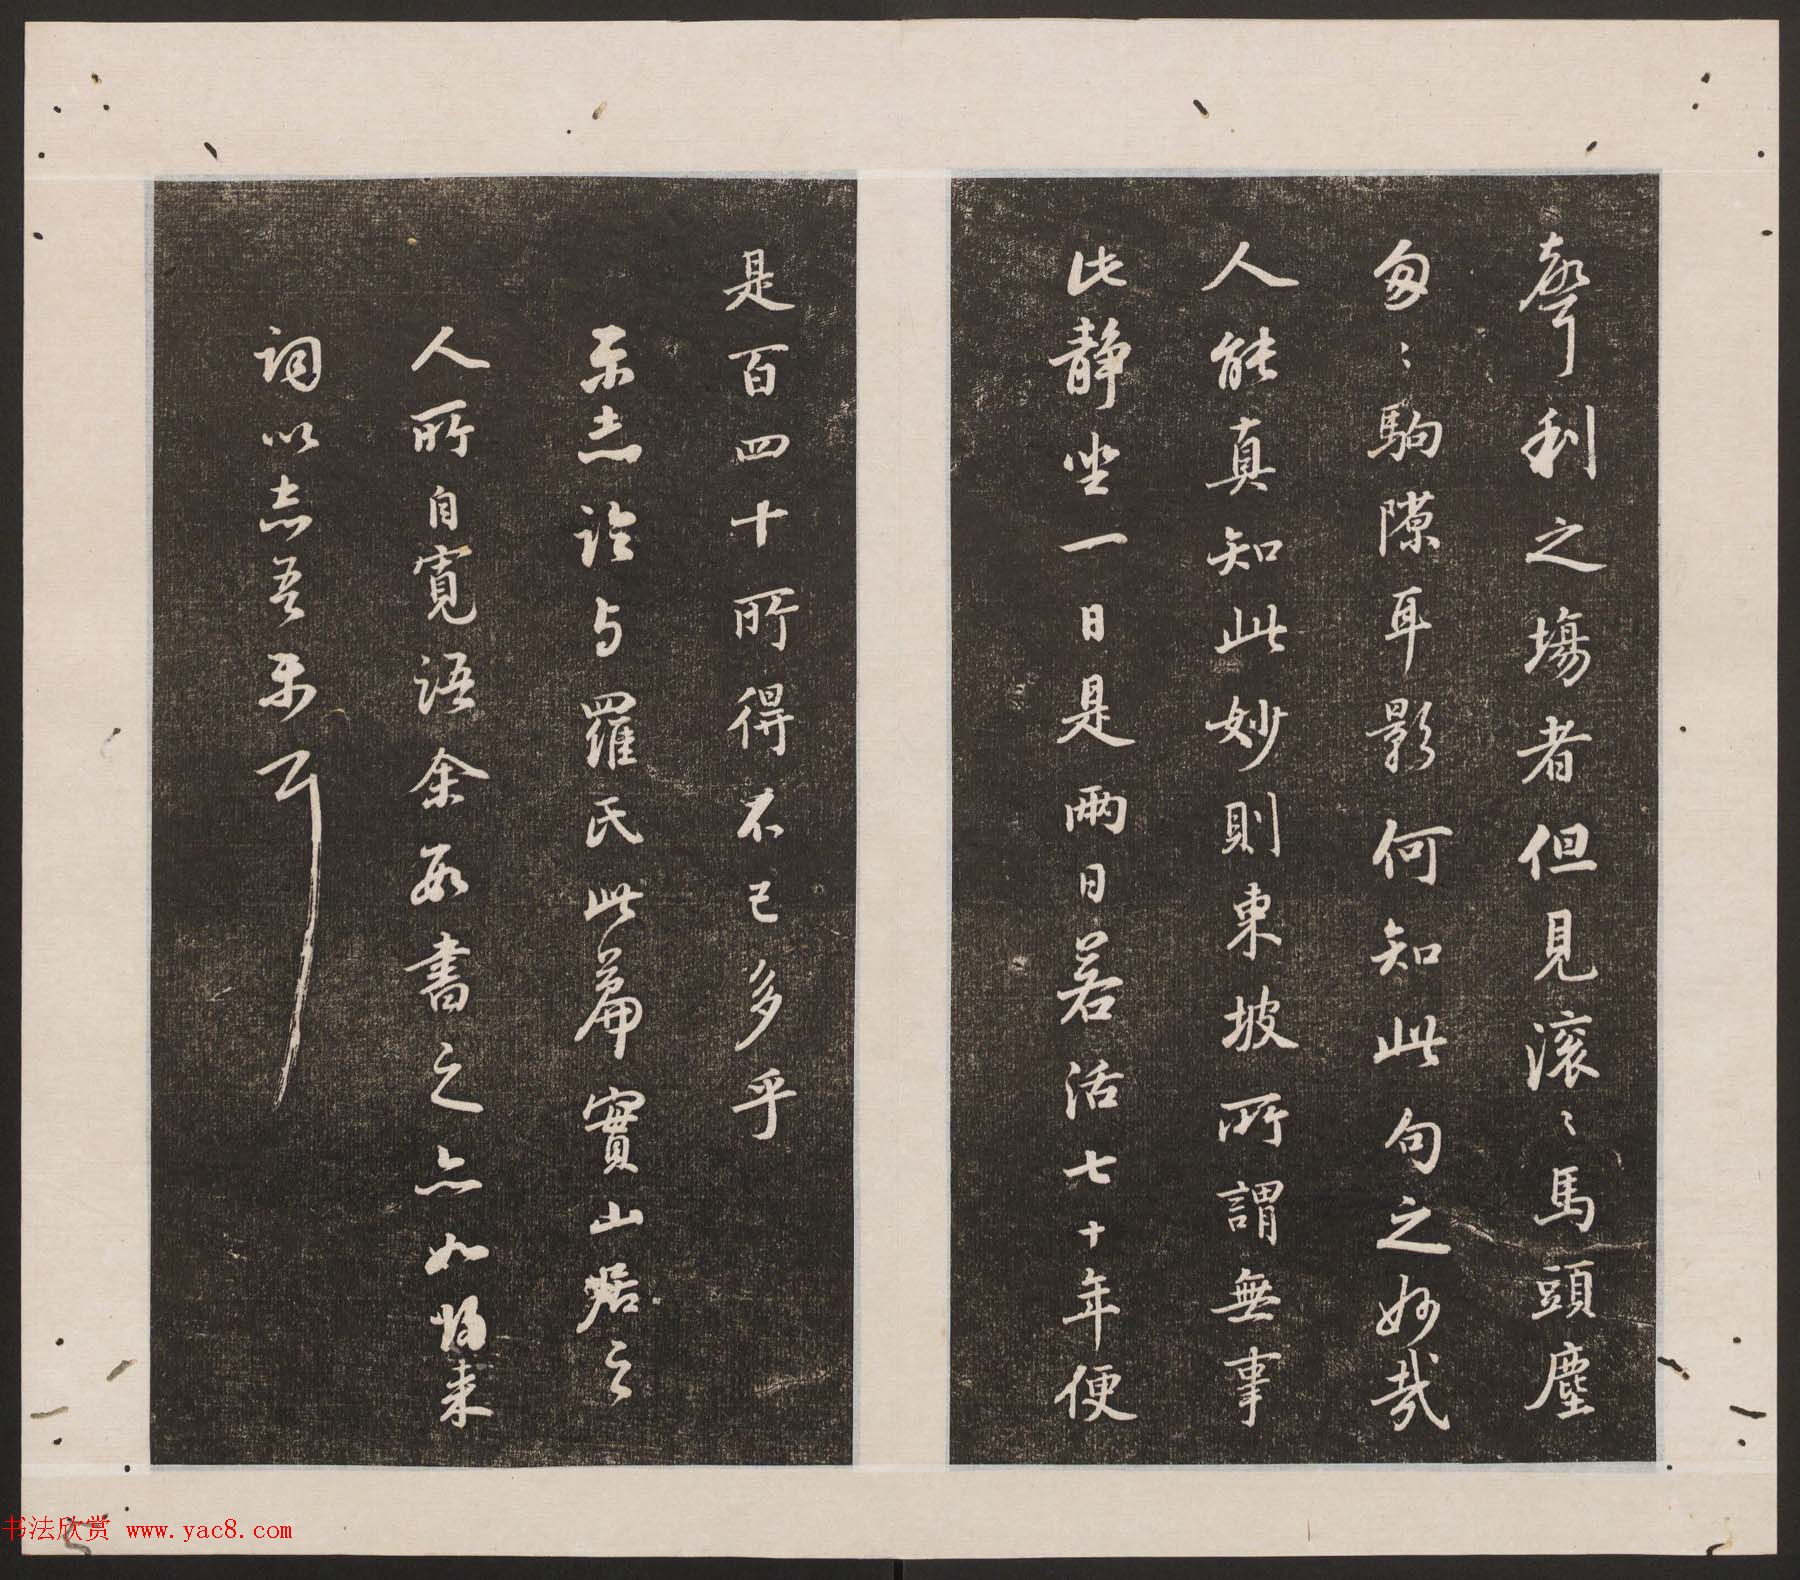 聲利之場者但見滾〻馬頭塵
匆〻駒隙耳影何知此句之妙哉
人能真知此妙則東坡所謂無事
此靜坐一日是兩日若活七十年便
是百四十所得不已多乎
樂志論与羅氏此篇實山居之
人所自寬語余書之亦如歸来
詞以志吾樂耳
书法欣赏 www.yac8.com